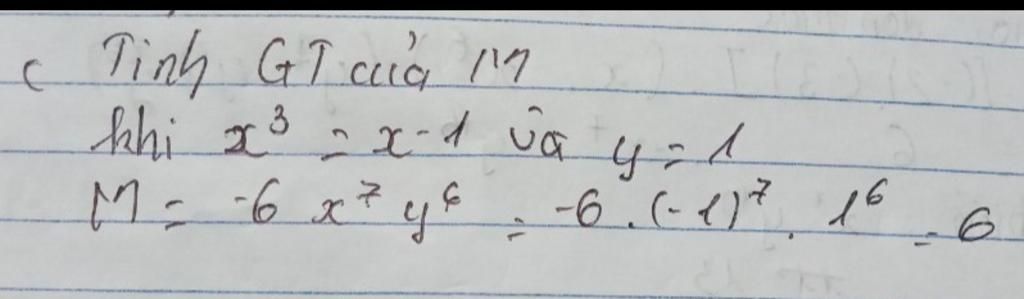 c Tính GT của M
khi x³ = x - 1 và y = 1
M = -6 x⁷ y⁶ = -6 . (-1)⁷ . 1⁶ = 6